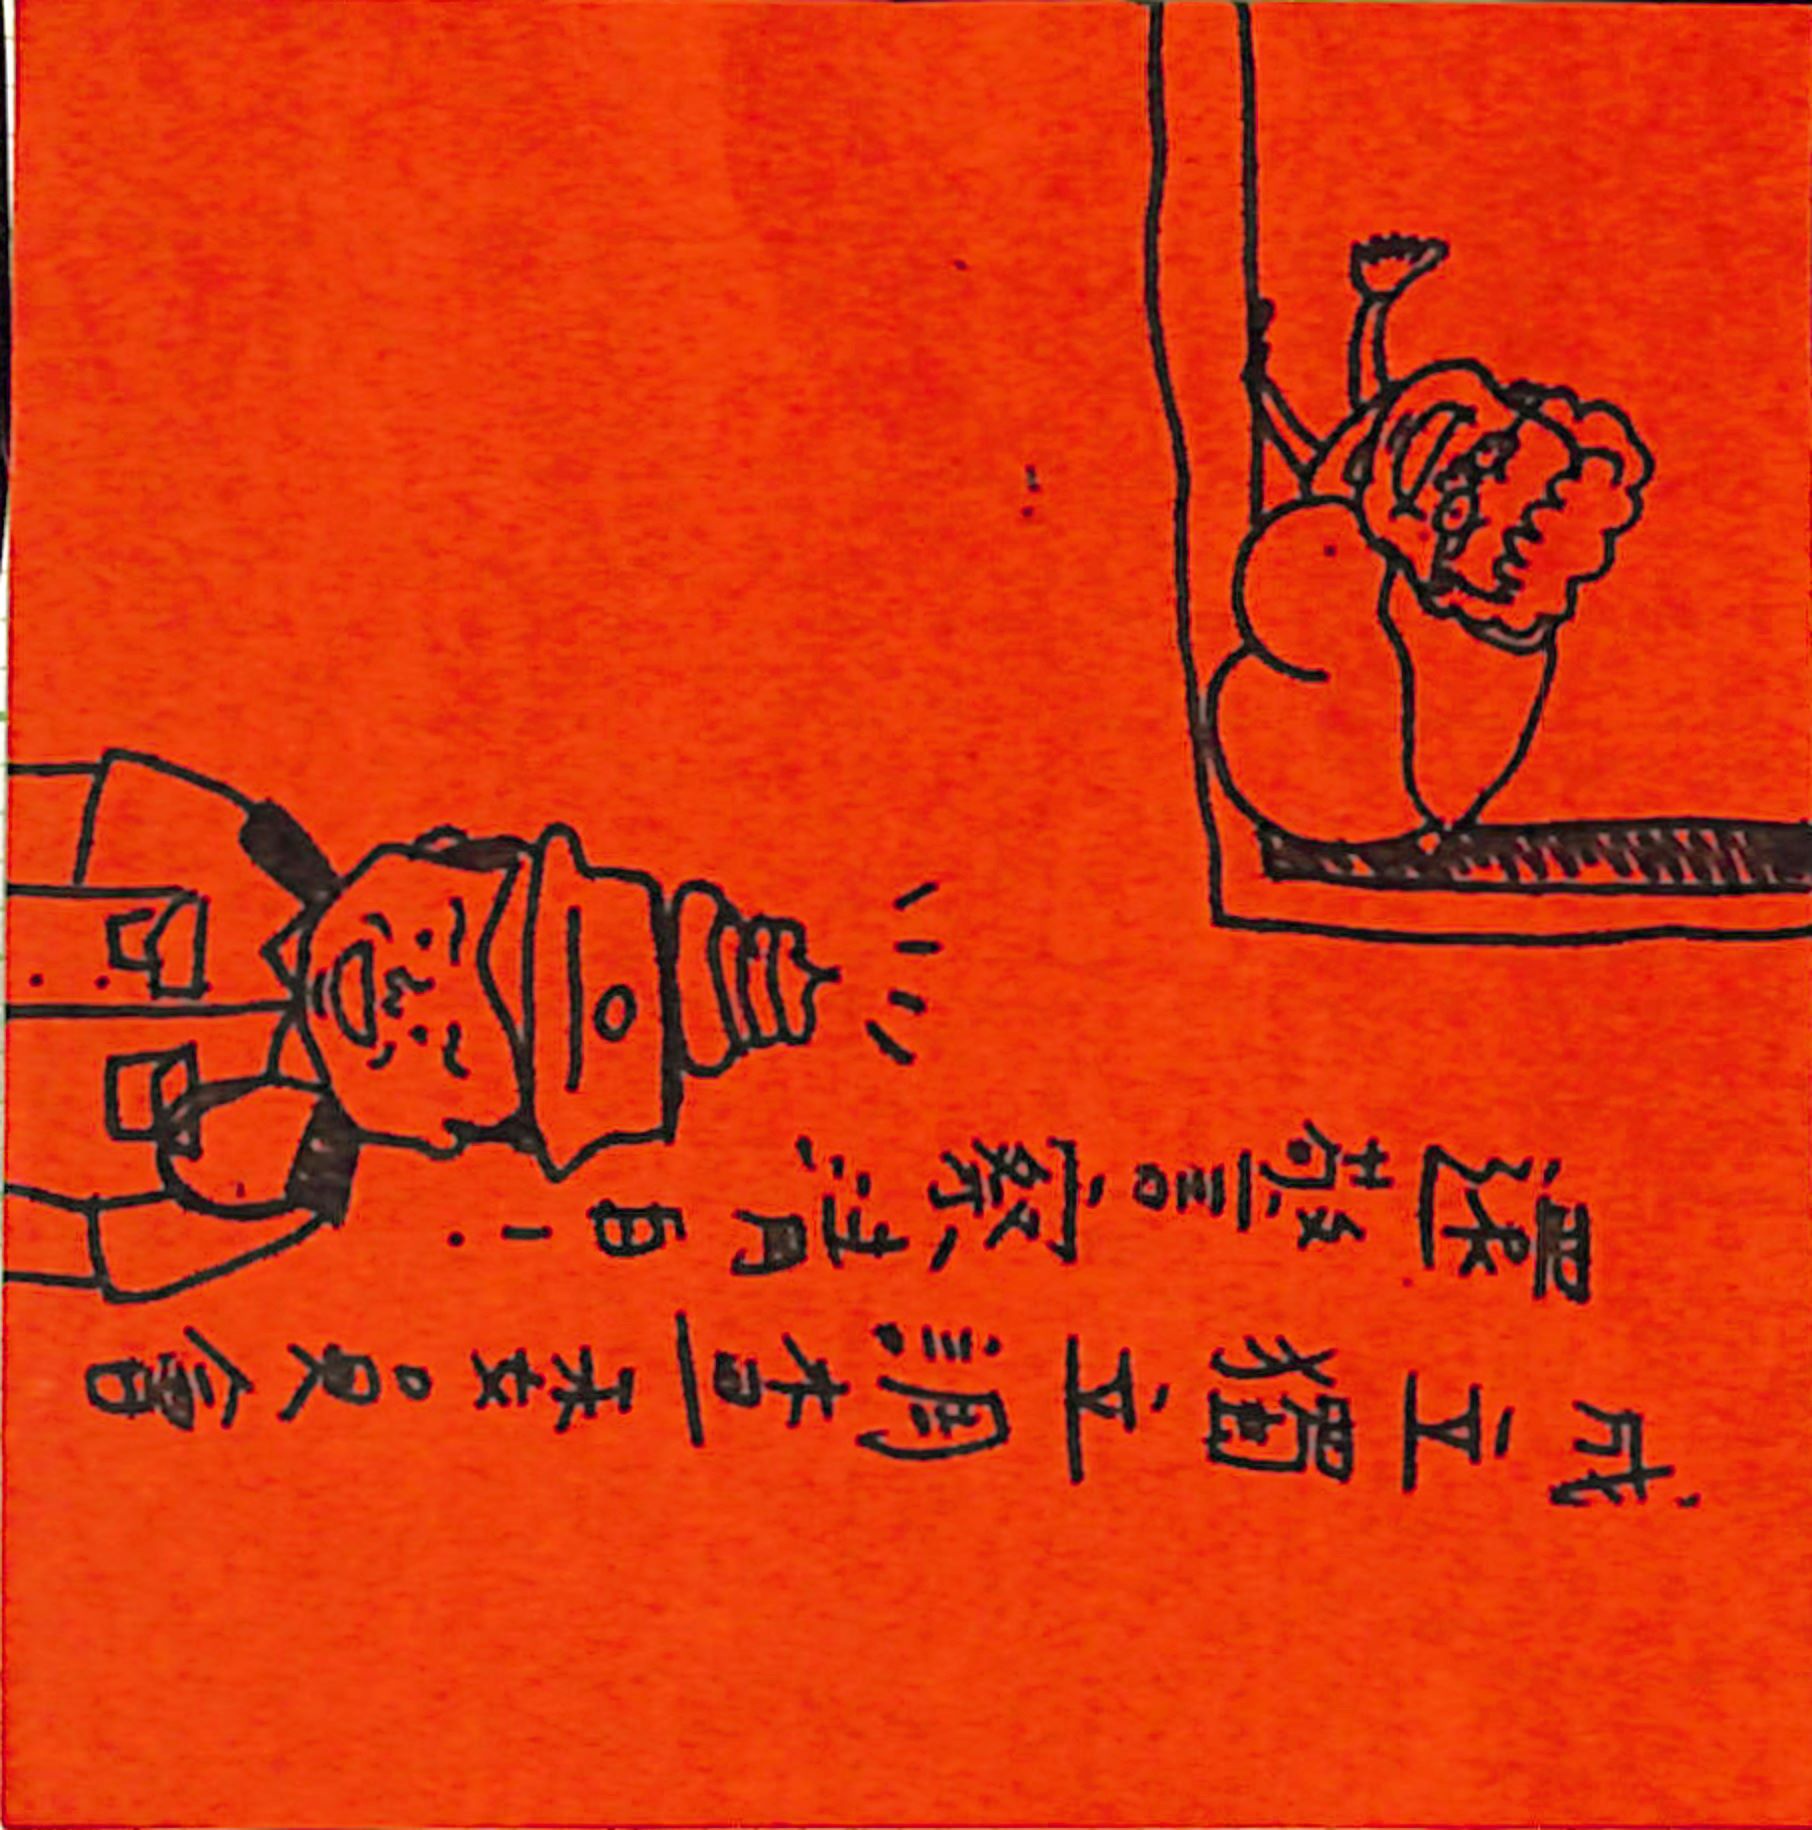 成立獨立調查委員會
還警察清白!